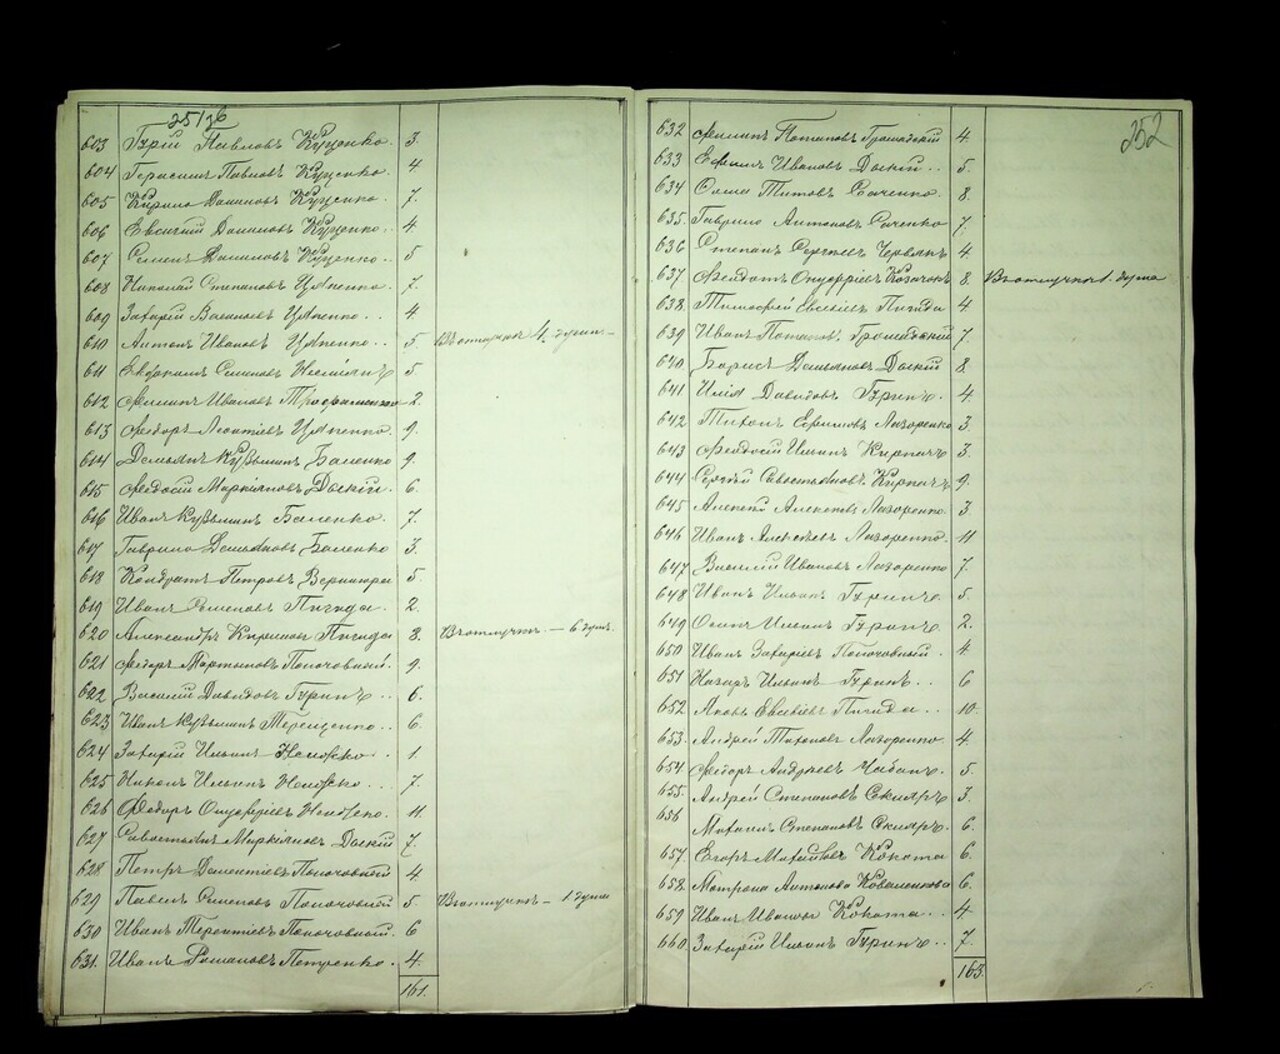 603 Гурій Павловъ Куценко. 3.
604 Герасимъ Павловъ Куценко. 4
605 Кирило Даниловъ Куценко. 7.
606 Евсигній Даниловъ Куценко.. 4.
607 Семенъ Даниловъ Куценко.. 5
608 Николай Степановъ Цяпенко. 7.
609 Захарій Васильевъ Цяпенко.. 4.
610 Антонъ Ивановъ Цяпенко.. 5. Въ отлучкѣ 4 души
611 Евдокимъ Семеновъ 5
612 Филипъ Ивановъ Трофименко 2.
613 Федоръ Леонтіевъ Цяпенко. 9.
614 Демьянъ Кузьминъ Баленко 9.
615 Федосій Маркіяновъ Доскій. 6.
616 Иванъ Кузьминъ Баленко. 7.
617 Гаврило Демьяновъ Баленко 3.
618 Кондратъ Петровъ Вернигора 5.
619 Иванъ Семеновъ Пигида. 2.
620 Александръ Кириловъ Пигида 8. Въ отлучкѣ — 6 душъ.
621 Федоръ Мартыновъ Полочовный. 9.
622 Василій Давидовъ Гуринъ.. 6.
623 Иванъ Кузьминъ Терещенко.. 6.
624 Захарій Ильинъ 1.
625 Никонъ Ильинъ 7.
626 Федоръ Онуфріевъ 11.
627 Савостьянъ Маркіяновъ Доскій 7.
628 Петръ Дементіевъ Полочовный 4.
629 Павелъ Семеновъ Полочовный 5. Въ отлучкѣ — 1 душа
630 Иванъ Терентіевъ Полочовный. 6
631. Иванъ Романовъ Петренко. 4.
161.
252
632 Филипъ Потаповъ Громадскій 4.
633 Ефимъ Ивановъ Доскій.. 5.
634 Титовъ Саченко. 8.
635. Гаврило Антоновъ Саченко 7.
636 Степанъ Сергѣевъ Червякъ 4.
637 Федотъ Онуфріевъ Козачокъ 8. Въ отлучкѣ 1. душа
638. Тимофей Евсѣевъ Пигида 4.
639 Иванъ Потаповъ Громадскій 7.
640. Борисъ Демьяновъ Доскій 8.
641 Илія Давидовъ Гуринъ. 4.
642 Тихонъ Ефимовъ Лазоренко 3.
643 Федосій Ильинъ Кирпачъ 3.
644 Сергѣй Савостьяновъ Кирпачъ 9.
645 Алексѣй Алексѣевъ Лазоренко. 3
646 Иванъ Алексѣевъ Лазоренко. 11
647 Василій Ивановъ Лазоренко 7.
648 Иванъ Ильинъ Гуринъ. 5.
649 Осипъ Ильинъ Гуринъ 2.
650 Иванъ Захаріевъ Полочовный. 4
651 Назаръ Ильинъ Гуринъ.. 6
652 Яковъ Евсѣевъ Пигида.. 10.
653. Андрей Тихоновъ Лазоренко. 4.
654. Федоръ Андреевъ Чабанъ. 5.
655. Андрей Степановъ Скляръ. 3.
656 Степановъ Скляръ. 6.
657. Егоръ Матвѣевъ Кокота 6.
658. Матрона Антонова Коваленкова 6.
659 Иванъ Ивановъ Кокота.. 4.
660. Захарій Ильинъ Гуринъ.. 7.
163.